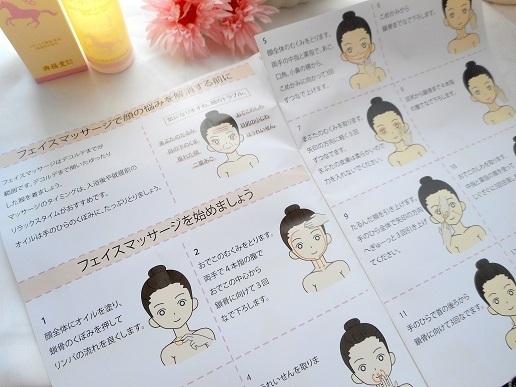 フェイスマッサージで顔の悩みを解消する前に
フェイスマッサージはデコルテまでが
範囲です。デコルテまで開いたゆったり
した服を着ましょう。
マッサージのタイミングは、入浴後や就寝前の
リラックスタイムがおすすめです。
オイルは手のひらのくぼみに、たっぷりとりましょう。
気になりますね、顔のトラブル。
二重あご
フェイスマッサージを始めましょう
1
顔全体にオイルを塗り、
鎖骨のくぼみを押して
リンパの流れを良くします。
2
おでこのむくみをとります。
両手で4本指の腹で
おでこの中心から
鎖骨に向けて3回
なで下ろします。
4
うれいせんを取りま
5
顔全体のむくみをとります。
両手の中指と薬指で、あご
口角、小鼻の横から、
こめかみに向かって3回
ずつなで上げます。
6
こめかみから
鎖骨までなで下ろします。
7
まぶたのむくみをとります。
矢印の方向に軽く3回
ずつなでます。
まぶたの皮膚は柔らかい
力を入れないでください。
8
9
たるんだ頬を引き上げます。
手のひら全体で矢印の方向に
へぎゅーっと3回引き上げ
てください。
10
11
手のひらで首の後ろから
鎖骨に向けて3回なでます。